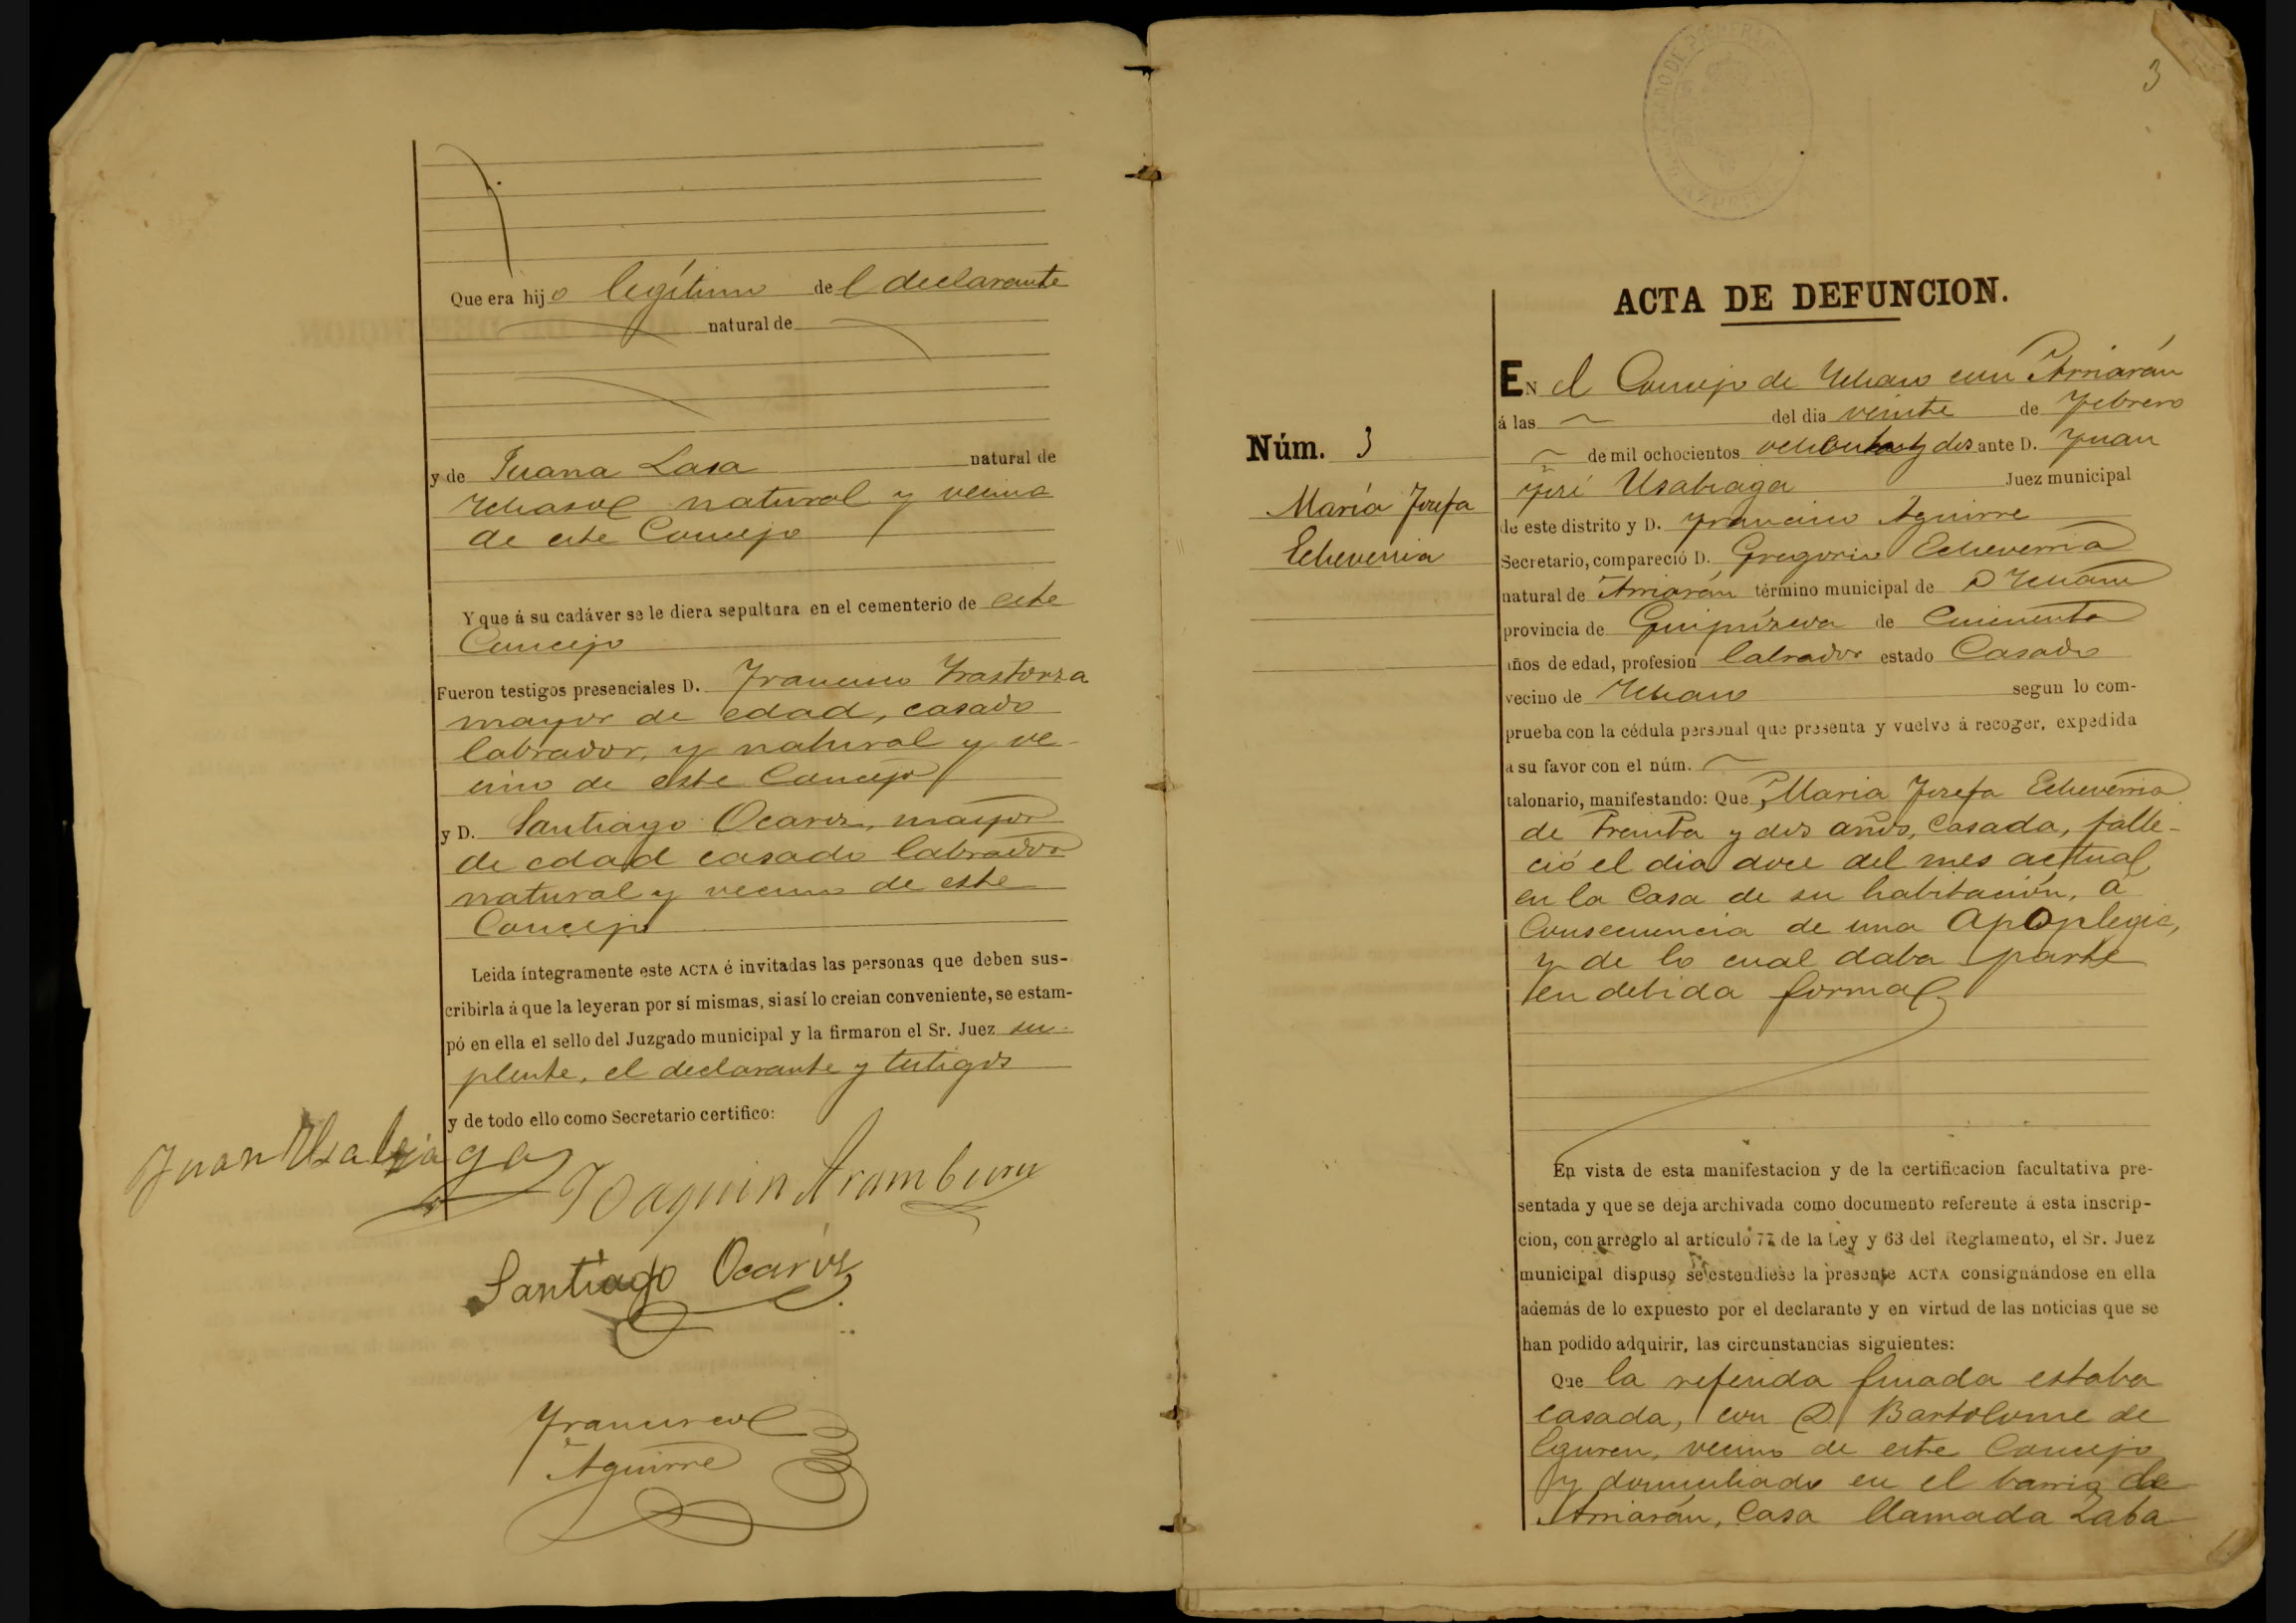 Que era hijo legítimo del declarante
natural de
y de Juana Lasa natural de
Ichaso natural y vecina
de este Concejo
Y que á su cadáver se le diera sepultura en el cementerio de este
Concejo
Fueron testigos presenciales D. Francisco Irastorza
mayor de edad, casado
labrador, y natural y ve-
cino de este Concejo
y D. Santiago Ocariz, mayor
de edad casado labrador
natural y vecino de este
Concejo
Leida íntegramente este ACTA é invitadas las personas que deben sus-
cribirla á que la leyeran por sí mismas, si así lo creian conveniente, se estam-
pó en ella el sello del Juzgado municipal y la firmaron el Sr. Juez su-
plente, el declarante y testigos
y de todo ello como Secretario certifico:
Juan Usabiaga
Joaquin Aramburu
Santiago Ocariz
Francisco
Aguirre
3
ACTA DE DEFUNCION.
Núm. 3
María Josefa
Echeverria
EN el Concejo de Ichaso con Arriarán
á las del dia veinte de Febrero
de mil ochocientos ochenta y dos ante D. Juan
José Usabiaga Juez municipal
de este distrito y D. Francisco Aguirre
Secretario, compareció D. Gregorio Echeverria
natural de Arriarán término municipal de Ichaso
provincia de Guipúzcoa de Cincuenta
años de edad, profesion labrador estado Casado
vecino de Ichaso segun lo com-
prueba con la cédula personal que presenta y vuelve á recoger, expedida
a su favor con el núm.
talonario, manifestando: Que Maria Josefa Echeverria
de treinta y dos años, casada, falle-
ció el dia doce del mes actual
en la Casa de su habitación, á
Consecuencia de una Apoplegia,
y de lo cual daba parte
en debida forma
En vista de esta manifestacion y de la certificacion facultativa pre-
sentada y que se deja archivada como documento referente á esta inscrip-
cion, con arreglo al artículo 77 de la Ley y 63 del Reglamento, el Sr. Juez
municipal dispuso se estendiese la presente ACTA consignándose en ella
además de lo expuesto por el declarante y en virtud de las noticias que se
han podido adquirir, las circunstancias siguientes:
Que la referida finada estaba
casada, con D. Bartolome de
Eguren, vecino de este Concejo
y domiciliado en el barrio de
Arriarán, Casa llamada Zaba